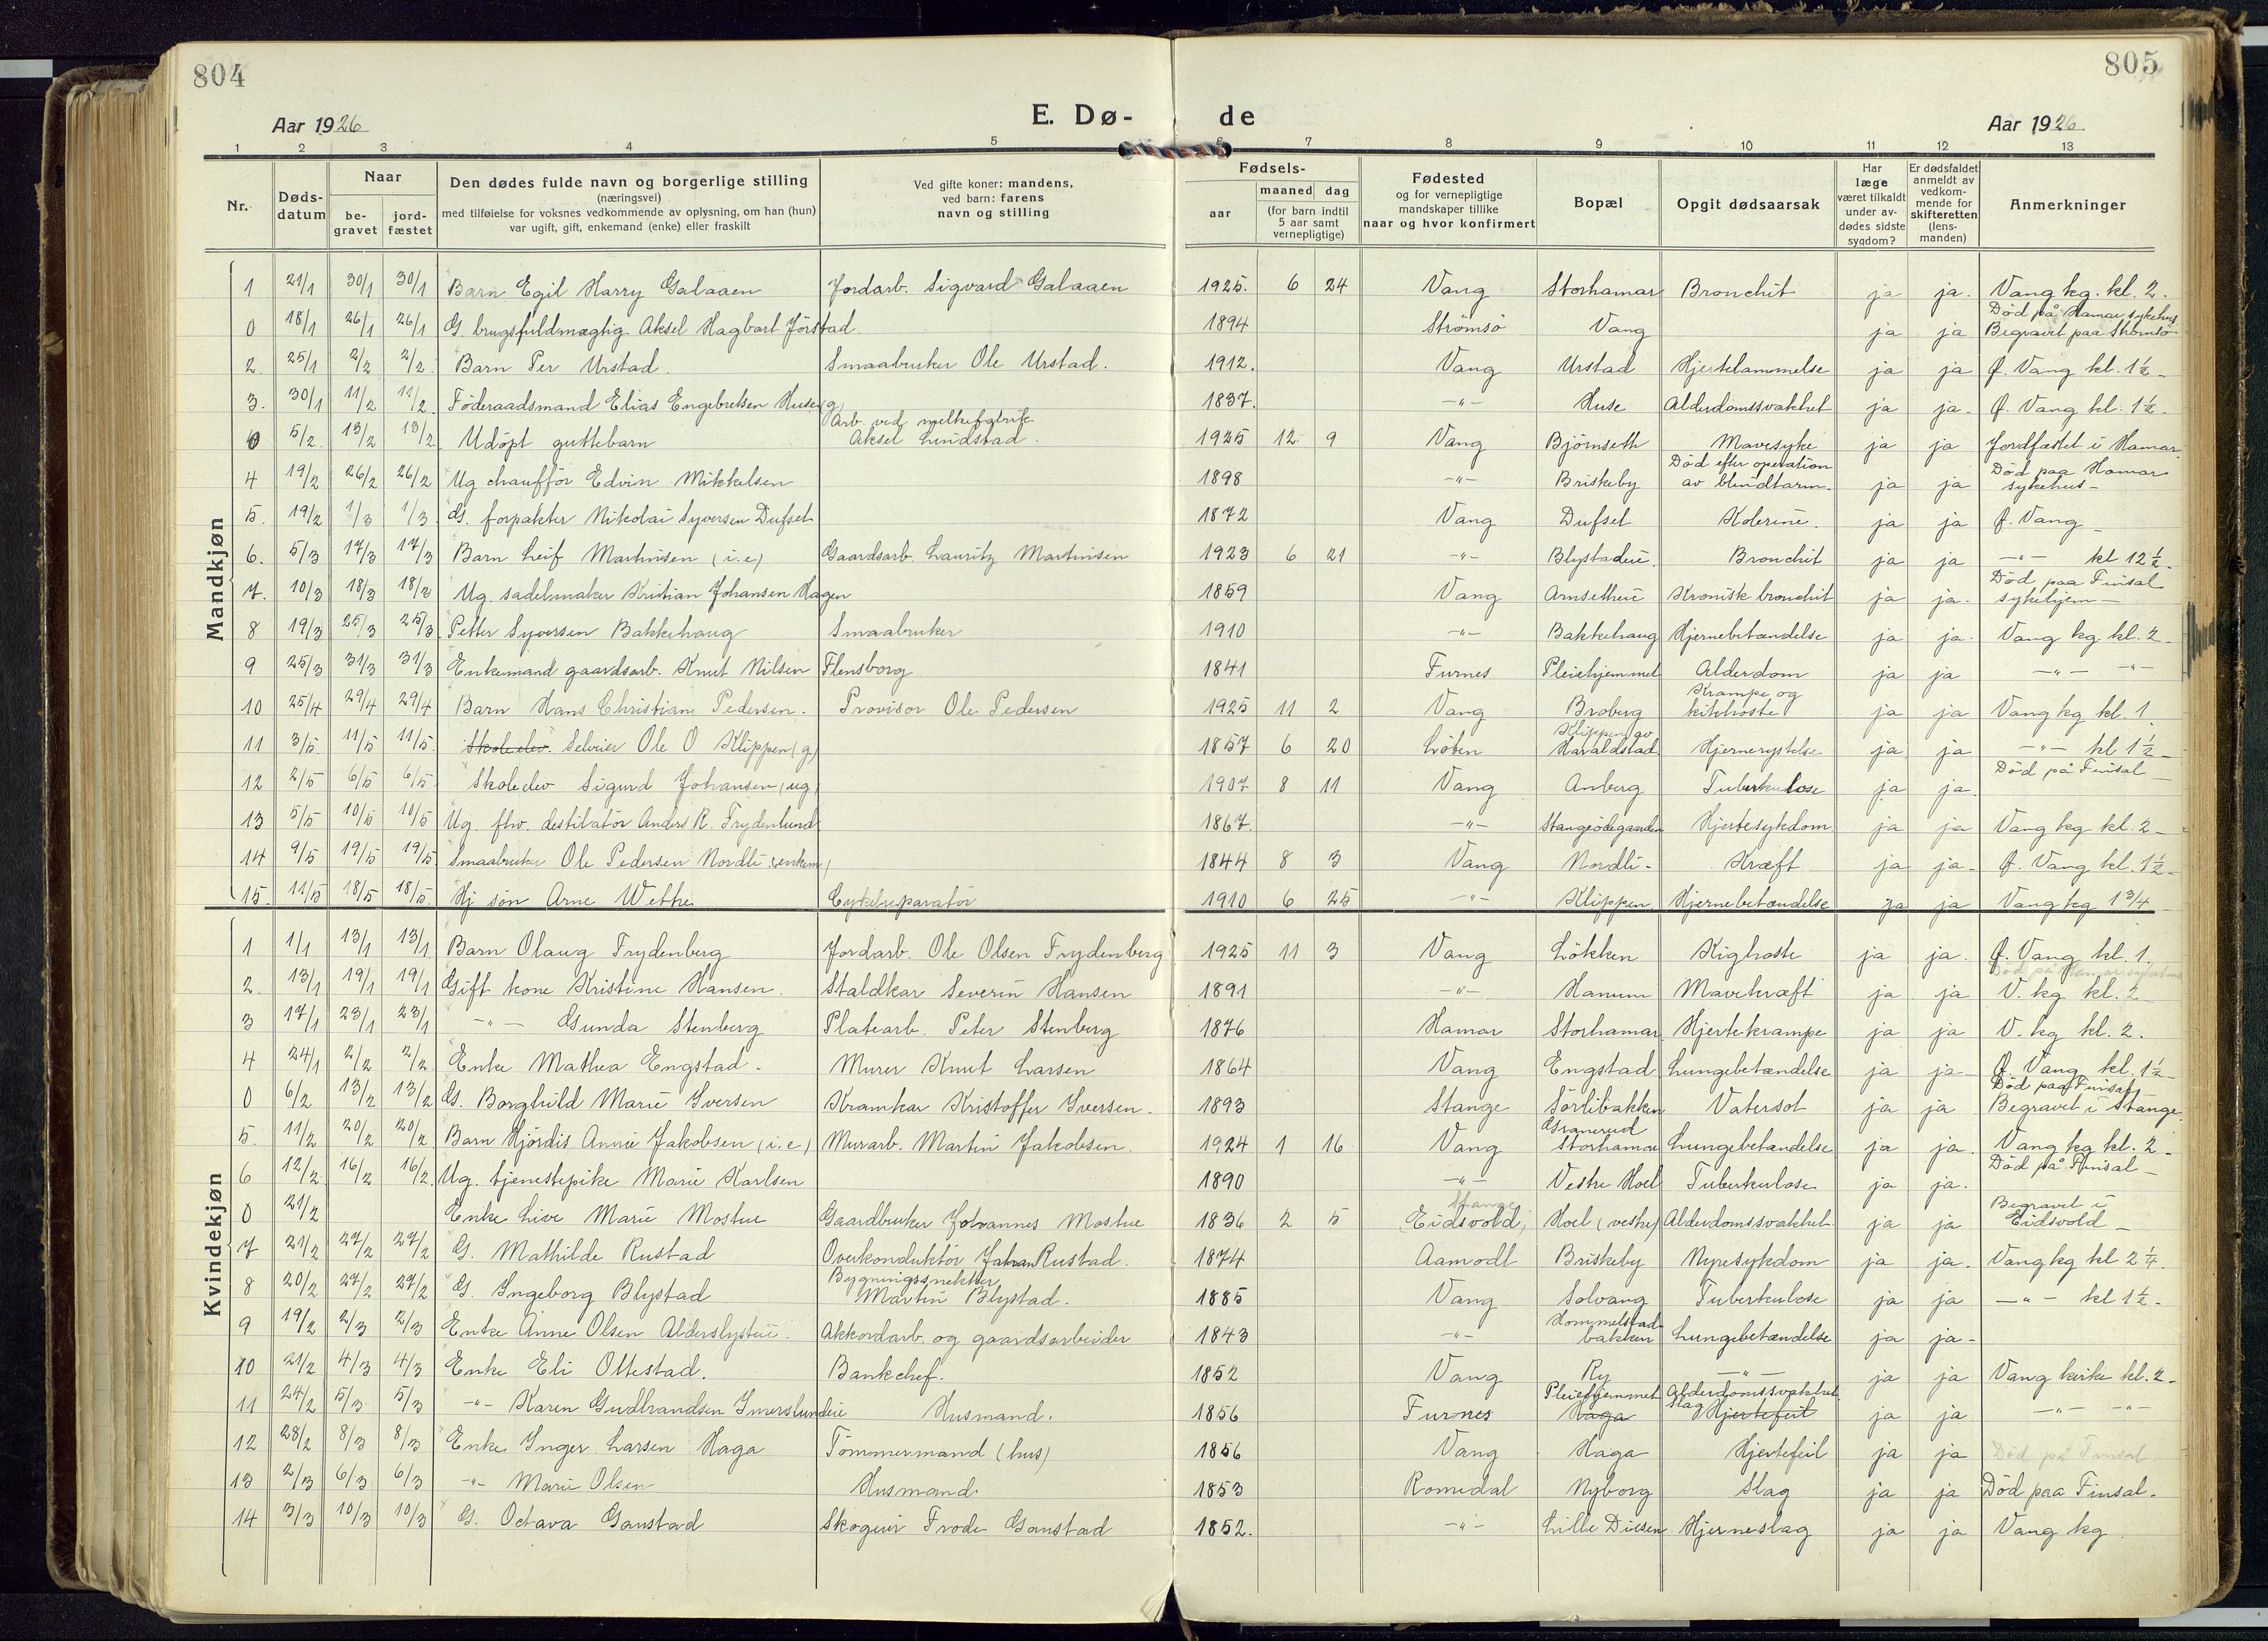 804
805
Aar 1926
E. Dø-
de
Aar 1926
1 2 3 4 5 6 7 8 9 10 11 12 13
Nr.
Døds-
datum
Naar
be-
gravet
jord-
fæstet
Den dødes fulde navn og borgerlige stilling
(næringsvei)
med tilføielse for voksnes vedkommende av oplysning, om han (hun)
var ugift, gift, enkemand (enke) eller fraskilt
Ved gifte koner: mandens,
ved barn: farens
navn og stilling
Fødsels-
aar
maaned dag
(for barn indtil
5 aar samt
vernepligtige)
Fødested
og for vernepligtige
mandskaper tillike
naar og hvor konfirmert
Bopæl
Opgit dødsaarsak
Har
læge
været tilkaldt
under av-
dødes sidste
sygdom?
Er dødsfaldet
anmeldt av
vedkom-
mende for
skifteretten
(lens-
manden)
Anmerkninger
Mandkjøn
1 21/1 30/1 30/1 Barn Egil Harry Galaaen Jordarb. Sigvard Galaaen 1925. 6 24 Vang Storhamar Bronchit ja ja. Vang kg. kl. 2.
0 18/1 26/1 26/1 G. brugsfuldmægtig Aksel Hagbart Jörstad. 1894 Strömsö Vang ja ja Död på Hamar sykehus Begravet paa Strömsö
2. 25/1 2/2 2/2. Barn Per Urstad. Smaabruker Ole Urstad. 1912. Vang Urstad Hjertelammelse ja ja Ø. Vang kl. 1½
3. 30/1 11/2 11/2. Föderaadsmand Elias Engebretsen Huse (g) 1837. -"- Huse Alderdomssvakhet ja ja. Ø. Vang kl. 1½.
0 5/2. 13/2 13/2 Udöpt guttebarn Arb. ved melkefabrik Aksel Lundstad. 1925 12 9 Vang Bjørnseth Mavesyke ja ja Jordfæstet i Hamar.
4 19/2 26/2 26/2 Ug chaufför Edvin Mikkelsen 1898 -"- Briskeby Död efter operation av blindtarm. ja ja Död paa Hamar sykehus
5. 19/2 1/3 1/3 G. forpakter Nikolai Syversen Dufset 1872 Vang Dufset Kolerine. ja ja Ø. Vang
6. 5/3 17/3 17/3 Barn Leif Martinsen (i.e) Gaardsarb. Lauritz Martinsen 1923 6 21 -"- Blystadeie. Bronchit ja ja -"- kl 12½.
7. 10/3 18/3 18/3 Ug. sadelmaker Kristian Johansen Hagen 1859 Vang Arnsetheie Kronisk bronchit ja ja. Död paa Finsal sykehjem
8 19/3 25/3 25/3 Petter Syversen Bakkehaug Smaabruker 1910 -"- Bakkehaug Hjernebetændelse ja ja. Vang kg. kl. 2
9 25/3 31/3 31/3 Enkemand gaardsarb. Knut Nilsen Flensborg 1841 Furnes Pleiehjemmet Alderdom ja ja -"- -"-
10 25/4 29/4 29/4 Barn Hans Christian Pedersen. Provisor Ole Pedersen 1925 11 2 Vang Broberg Krampe og kikhoste ja ja Vang kg kl. 1.
11 3/5. 11/5 11/5. Skoleelev. Selveier Ole O Klippen (g) 1857 6 20 Löten Klippen av Haraldstad Hjernerystelse ja ja -"- kl 1½
12 2/5 6/5 6/5 Skoleelev Sigurd Johansen (ug) 1907 8 11 Vang Anberg Tuberkulose ja ja. Död på Finsal
13 5/5 10/5 10/5 Ug. fhv. destilatör Anders R. Frydenlund 1867. -"- Stangeödegaarden Hjertesykdom ja ja Vang kg kl. 2
14 9/5 19/5 19/5 Smaabruker Ole Pedersen Nordli (enkem) 1844 8 3 Vang Nordli. Kræft ja ja. Ø. Vang kl. 1½
15. 11/5 18/5 18/5. Hj sön Arne Wethe Cykelreparatör 1910 6 25 -"- Klippen Hjernebetændelse ja ja Vang kg 1¾
Kvindekjøn
1 1/1 13/1 13/1 Barn Olaug Frydenberg Jordarb. Ole Olsen Frydenberg 1925 11 3 Vang Lökken Kighoste ja ja. Ø. Vang kl. 1.
2. 13/1 19/1 19/1 Gift kone Kristine Hansen. Staldkar Severin Hansen 1891 -"- Hanum Mavekræft ja ja Död på Hamar sykehus V. kg kl. 2
3 17/1 23/1 23/1 -"- Gunda Stenberg Platearb. Peter Stenberg 1876 Hamar Storhamar Hjertekrampe ja ja V. kg kl. 2.
4 24/1 2/2 2/2. Enke Mathea Engstad. Murer Knut Larsen 1864 Vang Engstad Lungebetændelse ja ja Ø. Vang kl. 1½
0 6/2 13/2 13/2 G. Borghild Marie Iversen Kramkar Kristoffer Iversen. 1893 Stange Sörlibakken Vatersot ja ja Död paa Finsal Begravet i Stange.
5. 11/2 20/2 20/2 Barn Hjördis Annie Jakobsen (i.e) Murarb. Martin Jakobsen. 1924 1 16 Vang Granerud Storhamar Lungebetændelse ja ja. Vang kg kl. 2
6 12/2 16/2 16/2. Ug. tjenestepike Marie Karlsen 1890 -"- Vestre Hoel Tuberkulose ja ja. Död på Finsal
0 21/2 Enke Live Marie Mostue Gaardbruker Johannes Mostue 1836 2 5 Stange (Eidsvold) Hoel (vestre) Alderdomssvakhet ja ja Begravet i Eidsvold
7 21/2 27/2 27/2 G. Mathilde Rustad Overkonduktör Johan Rustad. 1874 Aamodt Briskeby Nyresykdom ja ja. Vang kg kl 2¼.
8 20/2 27/2 27/2 G. Ingeborg Blystad Bygningssnekker Martin Blystad. 1885 Vang Solvang Tuberkulose ja ja -"- kl 1½.
9 19/2 2/3 2/3 Enke Anne Olsen Alderslysteie. Akkordarb. og gaardsarbeider 1843 -"- Hommelstadbakken Lungebetændelse ja ja
10 21/2 4/3 4/3 Enke Eli Ottestad. Bankchef. 1852 Vang Ry -"- ja ja Vang kirke kl. 2
11 24/2 5/3 5/3 -"- Karen Gudbrandsen Imerslundeie Husmand. 1856 Furnes Pleiehjemmet Haga Alderdomssvakhet Slag Hjertefeil ja ja -"- -"-
12 28/2 8/3 8/3 Enke Inger Larsen Haga Tömmermand (hus) 1856 Vang Haga Hjertefeil ja ja Död på Finsal.
13 2/3 6/3 6/3 -"- Marie Olsen Husmand. 1853 Romedal Nyborg Slag ja ja Död paa Finsal.
14 3/3 10/3 10/3 G. Octava Gaustad Skogeier Frode Gaustad 1852. -"- Lille Diesen Hjerneslag ja ja Vang kg